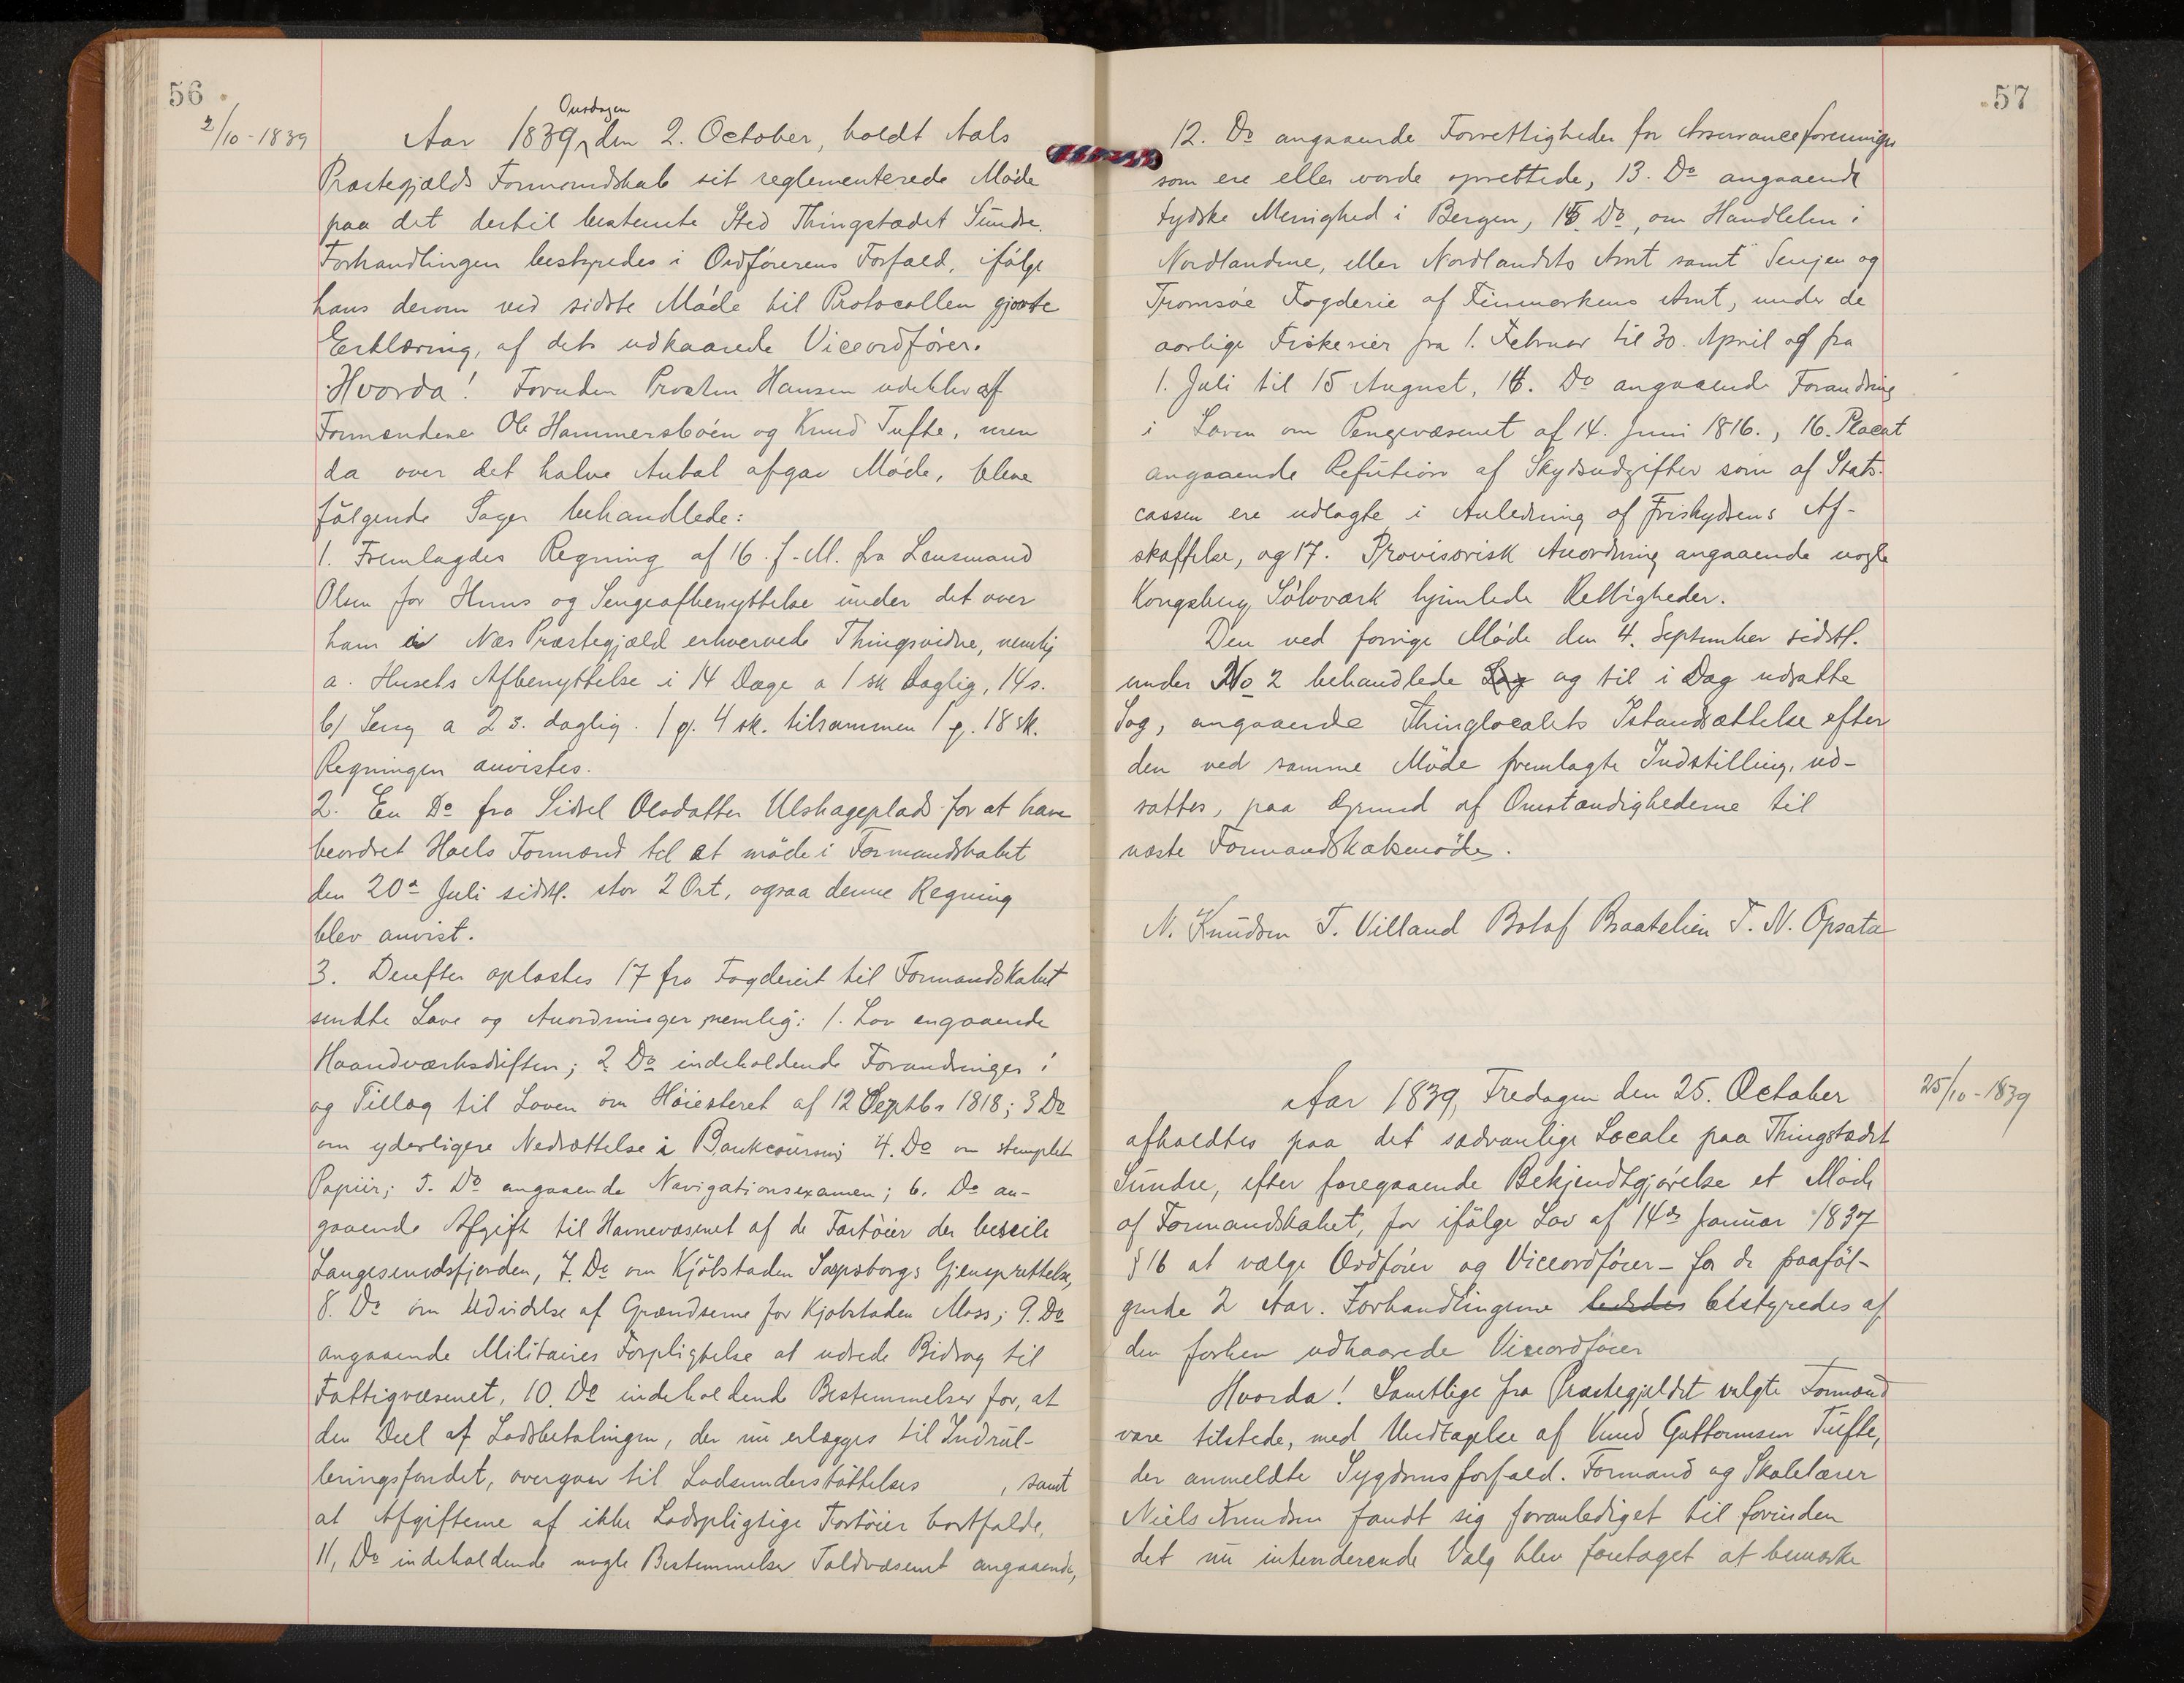 56
2/10-1839
Onsdagen
Aar 1839, den 2. October, holdt Aals
Præstegjælds Formandskab sit reglementerede Möde
paa det dertil bestemte Sted Thingstædet Sundre.
Forhandlingen bestyredes i Ordförerens Forfald, ifölge
hans derom ved sidste Möde til Protocollen gjorte
Erklæring, af dets udkaarede Viceordförer.
Hvorda! Foruden Provsten Hansen udeblev af
Formændene Ole Hammersböen og Knud Tufte, men
da over det halve Antal afgav Möde, bleve
fölgende Sager behandlede:
1. Fremlagdes Regning af 16. f. M. fra Lensmand
Olsen for Huus og Sengeafbenyttelse under det over
ham i Næs Præstegjæld erhvervede Thingsvidne, nemlig
a. Husets Afbenyttelse i 14 Dage a 1 sk daglig, 14 s.
b) Seng a 2 s. daglig. 1 ɟ. 4 sk. tilsammen 1 ɟ. 18 sk.
Regningen anvistes.
2. En Do fra Sidsel Olsdatter Ulshageplads for at have
beordret Hoels Formænd til at möde i Formandskabet
den 20de Juli sidstl. stor 2 Ort, ogsaa denne Regning
blev anvist.
3. Derefter oplæstes 17 fra Fogderiet til Formandskabet
sendte Love og Anordninger, nemlig: 1. Lov angaaende
Haandværksdriften; 2 Do indeholdende Forandringer i
og Tillæg til Loven om Höiesteret af 12 Septbr 1818; 3 Do
om yderligere Nedsættelse i Bankcoursen; 4. Do om stemplet
Papiir; 5. Do angaaende Navigationsexamen; 6. Do an-
gaaende Afgift til Havnevæsenet af de Fartöier der beseile
Langesundsfjorden, 7. Do om Kjöbstaden Sarpsborgs Gjenoprettelse,
8. Do om Udvidelse af Grændserne for Kjöbstaden Moss; 9. Do
angaaende Militaires Forpligtelse at udrede Bidrag til
Fattigvæsenet, 10. Do indeholdende Bestemmelser for, at
den Deel af Lodsbetalingen, der nu erlægges til Indrul-
leringsfondet, overgaar til Lodsunderstöttelses , samt
at Afgifterne af ikke Lodspligtige Fartöier bortfalde,
11, Do indeholdende nogle Bestemmelser Toldvæsenet angaaende,
57
12. Do angaaende Forrettigheder for Assuranceforeninger
som ere eller vorde oprettede, 13. Do angaaende
tydske Menighed i Bergen, 15. Do, om Handlelen i
Nordlandene, eller Nordlandets Amt samt Senjen og
Tromsöe Fogderie af Finmarkens Amt, under de
aarlige Fiskerier fra 1. Februar til 30. April og fra
1. Juli til 15 August, Do angaaende Forandring
i Loven om Pengevæsenet af 14. Juni 1816., 16. Placat
angaaende Refution af Skydsudgifter som af Stats-
cassen ere udlagte i Anledning af Friskydsens Af-
skaffelse, og 17. Provisorisk Anordning angaaende nogle
Kongsberg Sölvværk hjemlede Rettigheder.
Den ved forrige Möde den 4. September sidstl.
under No 2 behandlede Sag og til i Dag udsatte
Sag, angaaende Thinglocalets Istandsættelse efter
den ved samme Möde fremlagte Indstilling, ud-
sattes, paa Grund af Omstændighederne til
næste Formandskabsmöde.
N. Knudsen T. Villand Botolf Braatelien T. N. Opsata
25/10-1839
Aar 1839, Fredagen den 25. October
afholdtes paa det sædvanlige Locale paa Thingstædet
Sundre, efter foregaaende Bekjendtgjörelse et Möde
af Formandskabet, for ifölge Lov af 14de Januar 1837
§ 16 at vælge Ordförer og Viceordförer – for de paaföl-
gende 2 Aar. Forhandlingerne lededes bestyredes af
den forhen udkaarede Viceordförer
Hvorda! Samtlige fra Præstegjeldet valgte Formænd
vare tilstede, med Undtagelse af Knud Guttormsen Tufte,
der anmeldte Sygdomsforfald. Formand og Skolelærer
Niels Knudsen fandt sig foranlediget til forinden
det nu intenderende Valg blev foretaget at bemærke